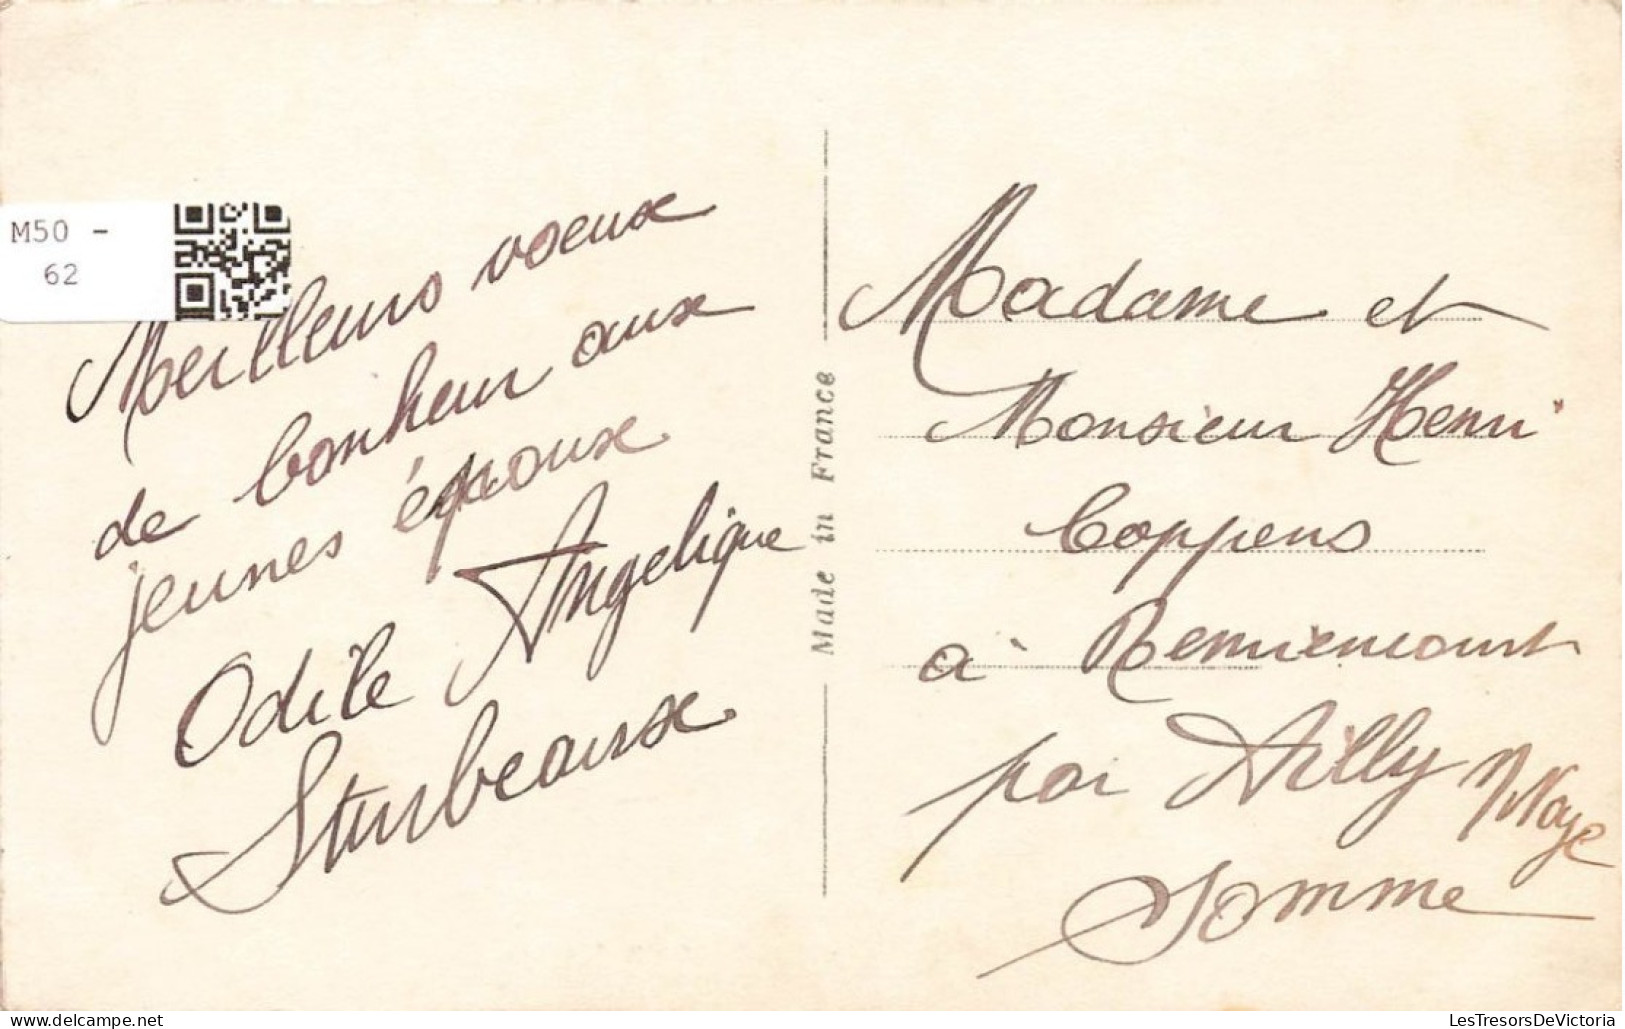 M50 -
62
Meilleurs voeux
de bonheur aux
jeunes époux
Odile Angelique
Sturbeaux
Made in France
Madame et
Monsieur Henri
Coppens
à Remiencourt
par Ailly s/Noye
Somme
LesTresorsDeVictoria